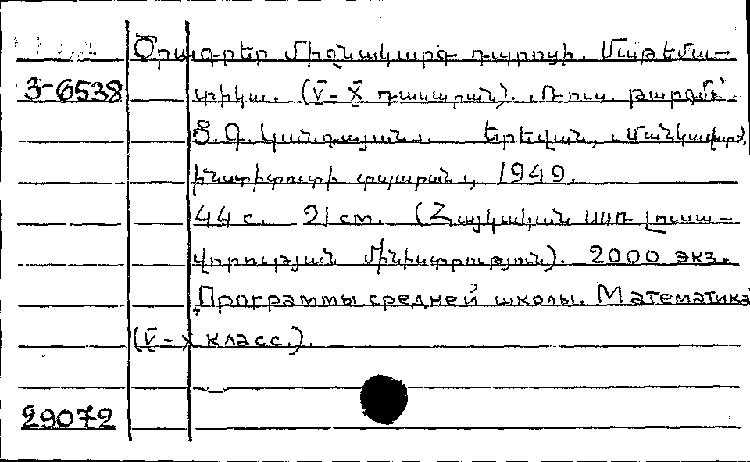 Ծրագրեր միջնակարգ դպրոցի. Մաթեմա-
3-6538 տիկա. (V-X դասարան). Ռուս. թարգմ՝
Երեվան, Մանկավարժ.
ինստիտուտի տպարան, 1949.
44 с. 21 см. (Հայկական ՍՍՌ լուսա-
վորության մինիստրություն). 2000 экз.
Программы средней школы. Математика
(V-X класс.).
29072